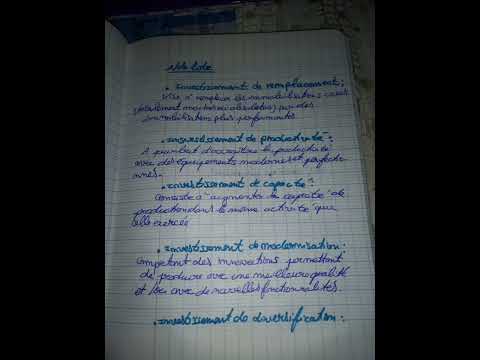 • Investissement de remplacement :
vise à remplacer les immobilisations
immobilisations plus performantes
• Investissement de productivité :
permettant d'accroître la productivité
avec des équipements modernes et perfection
nnés.
• Investissement de capacité :
Consiste à augmenter la capacité de
production dans la même activité que
elle exerce
• Investissement de modernisation.
comportent des innovations permettant
de produire avec une meilleure qualité
et avec de nouvelles fonctionnalités.
• Investissement de diversification :